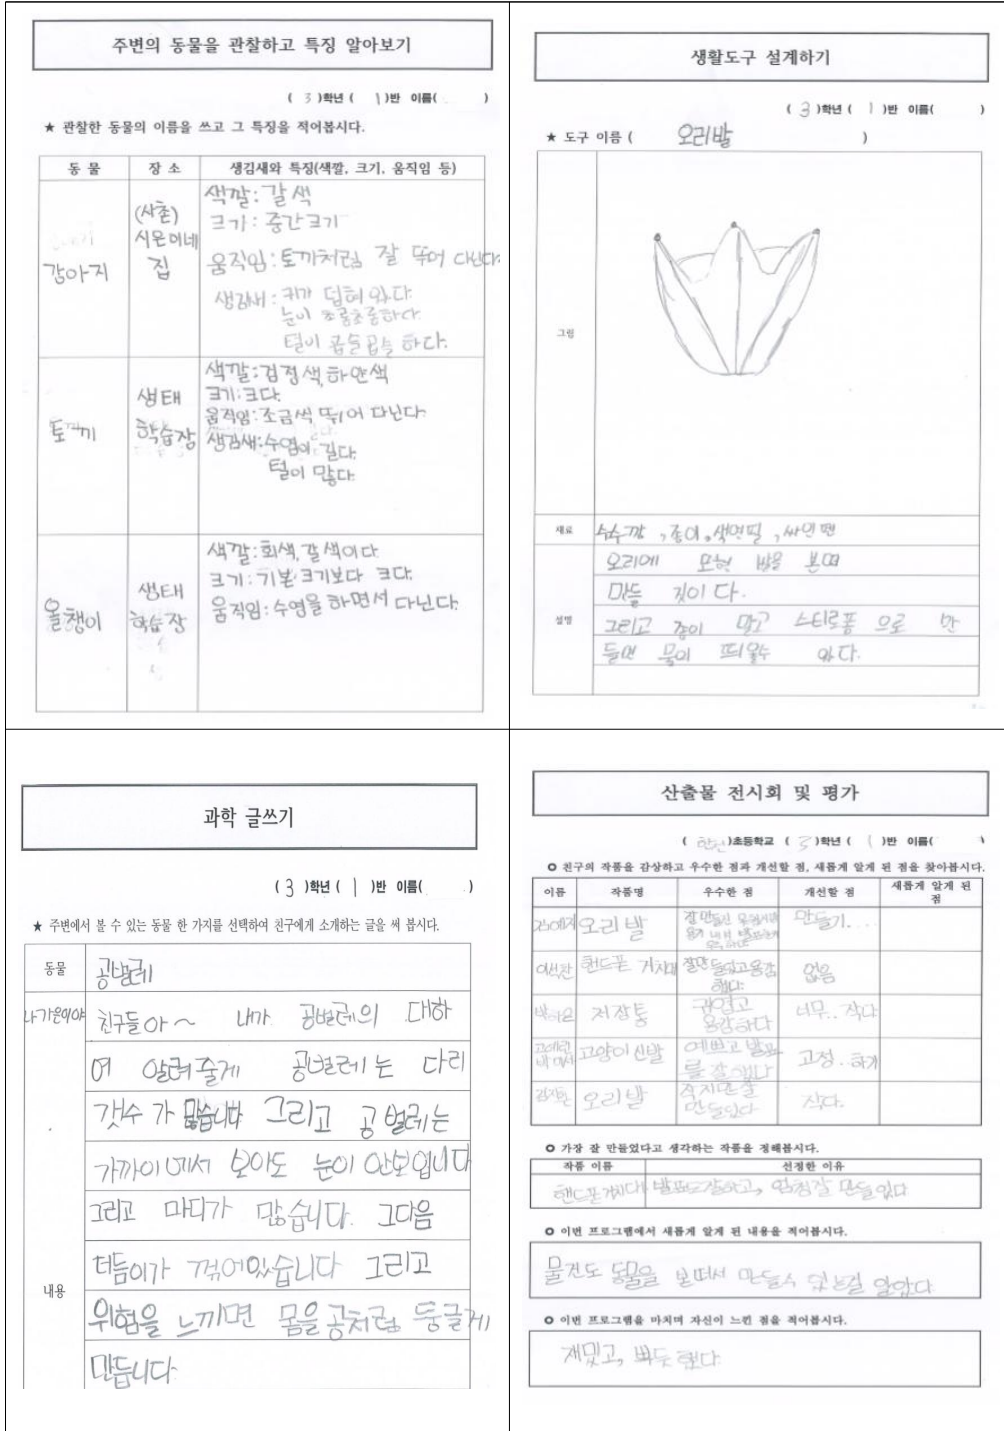 주변의 동물을 관찰하고 특징 알아보기
( 3 )학년 ( 1 )반 이름( )
★ 관찰한 동물의 이름을 쓰고 그 특징을 적어봅시다.
동 물 장 소 생김새와 특징(색깔, 크기, 움직임 등)
강아지
(사촌)
시은이네
집
색깔: 갈색
크기: 중간크기
움직임: 토끼처럼 잘 뛰어 다닌다.
생김새: 귀가 덥혀 있다.
눈이 초롱초롱하다.
털이 곱슬곱슬 하다.
토끼
생태
학습장
색깔: 검정색, 하얀색
크기: 크다.
움직임: 조금씩 뛰어 다닌다.
생김새: 수염이 길다.
털이 많다.
올챙이
생태
학습장
색깔: 회색, 갈색이다
크기: 기본 크기보다 크다.
움직임: 수영을 하면서 다닌다.
생활도구 설계하기
( 3 )학년 ( 1 )반 이름( )
★ 도구 이름 ( 오리발 )
그림
재료 수수깡, 종이, 색연필, 싸인펜
설명
오리에 발을 본떠
만들 것이다.
그리고 종이 말고 스티로폼 으로 만
들면 물이 띄울수 있다.
과학 글쓰기
( 3 )학년 ( 1 )반 이름( )
★ 주변에서 볼 수 있는 동물 한 가지를 선택하여 친구에게 소개하는 글을 써 봅시다.
동물 공벌레
내용
친구들아~ 내가 공벌레의 대하
여 알려줄게 공벌레는 다리
갯수가 많습니다 그리고 공벌레는
가까이에서 보아도 눈이 안보입니다
그리고 마디가 많습니다. 그다음
더듬이가 꺾어있습니다 그리고
위험을 느끼면 몸을 공처럼 둥글게
만듭니다.
산출물 전시회 및 평가
( )초등학교 ( 3 )학년 ( 1 )반 이름( )
○ 친구의 작품을 감상하고 우수한 점과 개선할 점, 새롭게 알게 된 점을 찾아봅시다.
이름 작품명 우수한 점 개선할 점 새롭게 알게 된 점
오리발 만들기....
핸드폰 거치대 잘만들었고 용감했다 없음
저장통 귀엽고 용감하다 너무..작다
고양이 신발 예쁘고 발표를 잘했다 고정..하기
오리발 작지만 잘 만들었다 작다.
○ 가장 잘 만들었다고 생각하는 작품을 정해봅시다.
작품 이름 선정한 이유
핸드폰거치대 발표도잘하고, 엄청잘 만들었다
○ 이번 프로그램에서 새롭게 알게 된 내용을 적어봅시다.
물건도 동물을 본떠서 만들수 있는걸 알았다
○ 이번 프로그램을 마치며 자신이 느낀 점을 적어봅시다.
재밌고, 뿌듯했다.